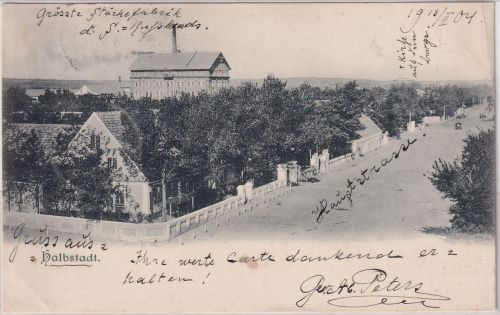 Grösste Stärkefabrik
d. S.-Russlands.
19 13/I 04
+ Kirche
auf dem
Hauptstrasse
Gruss aus
Halbstadt.
Ihre werte Carte dankend er=
halten!
Peters